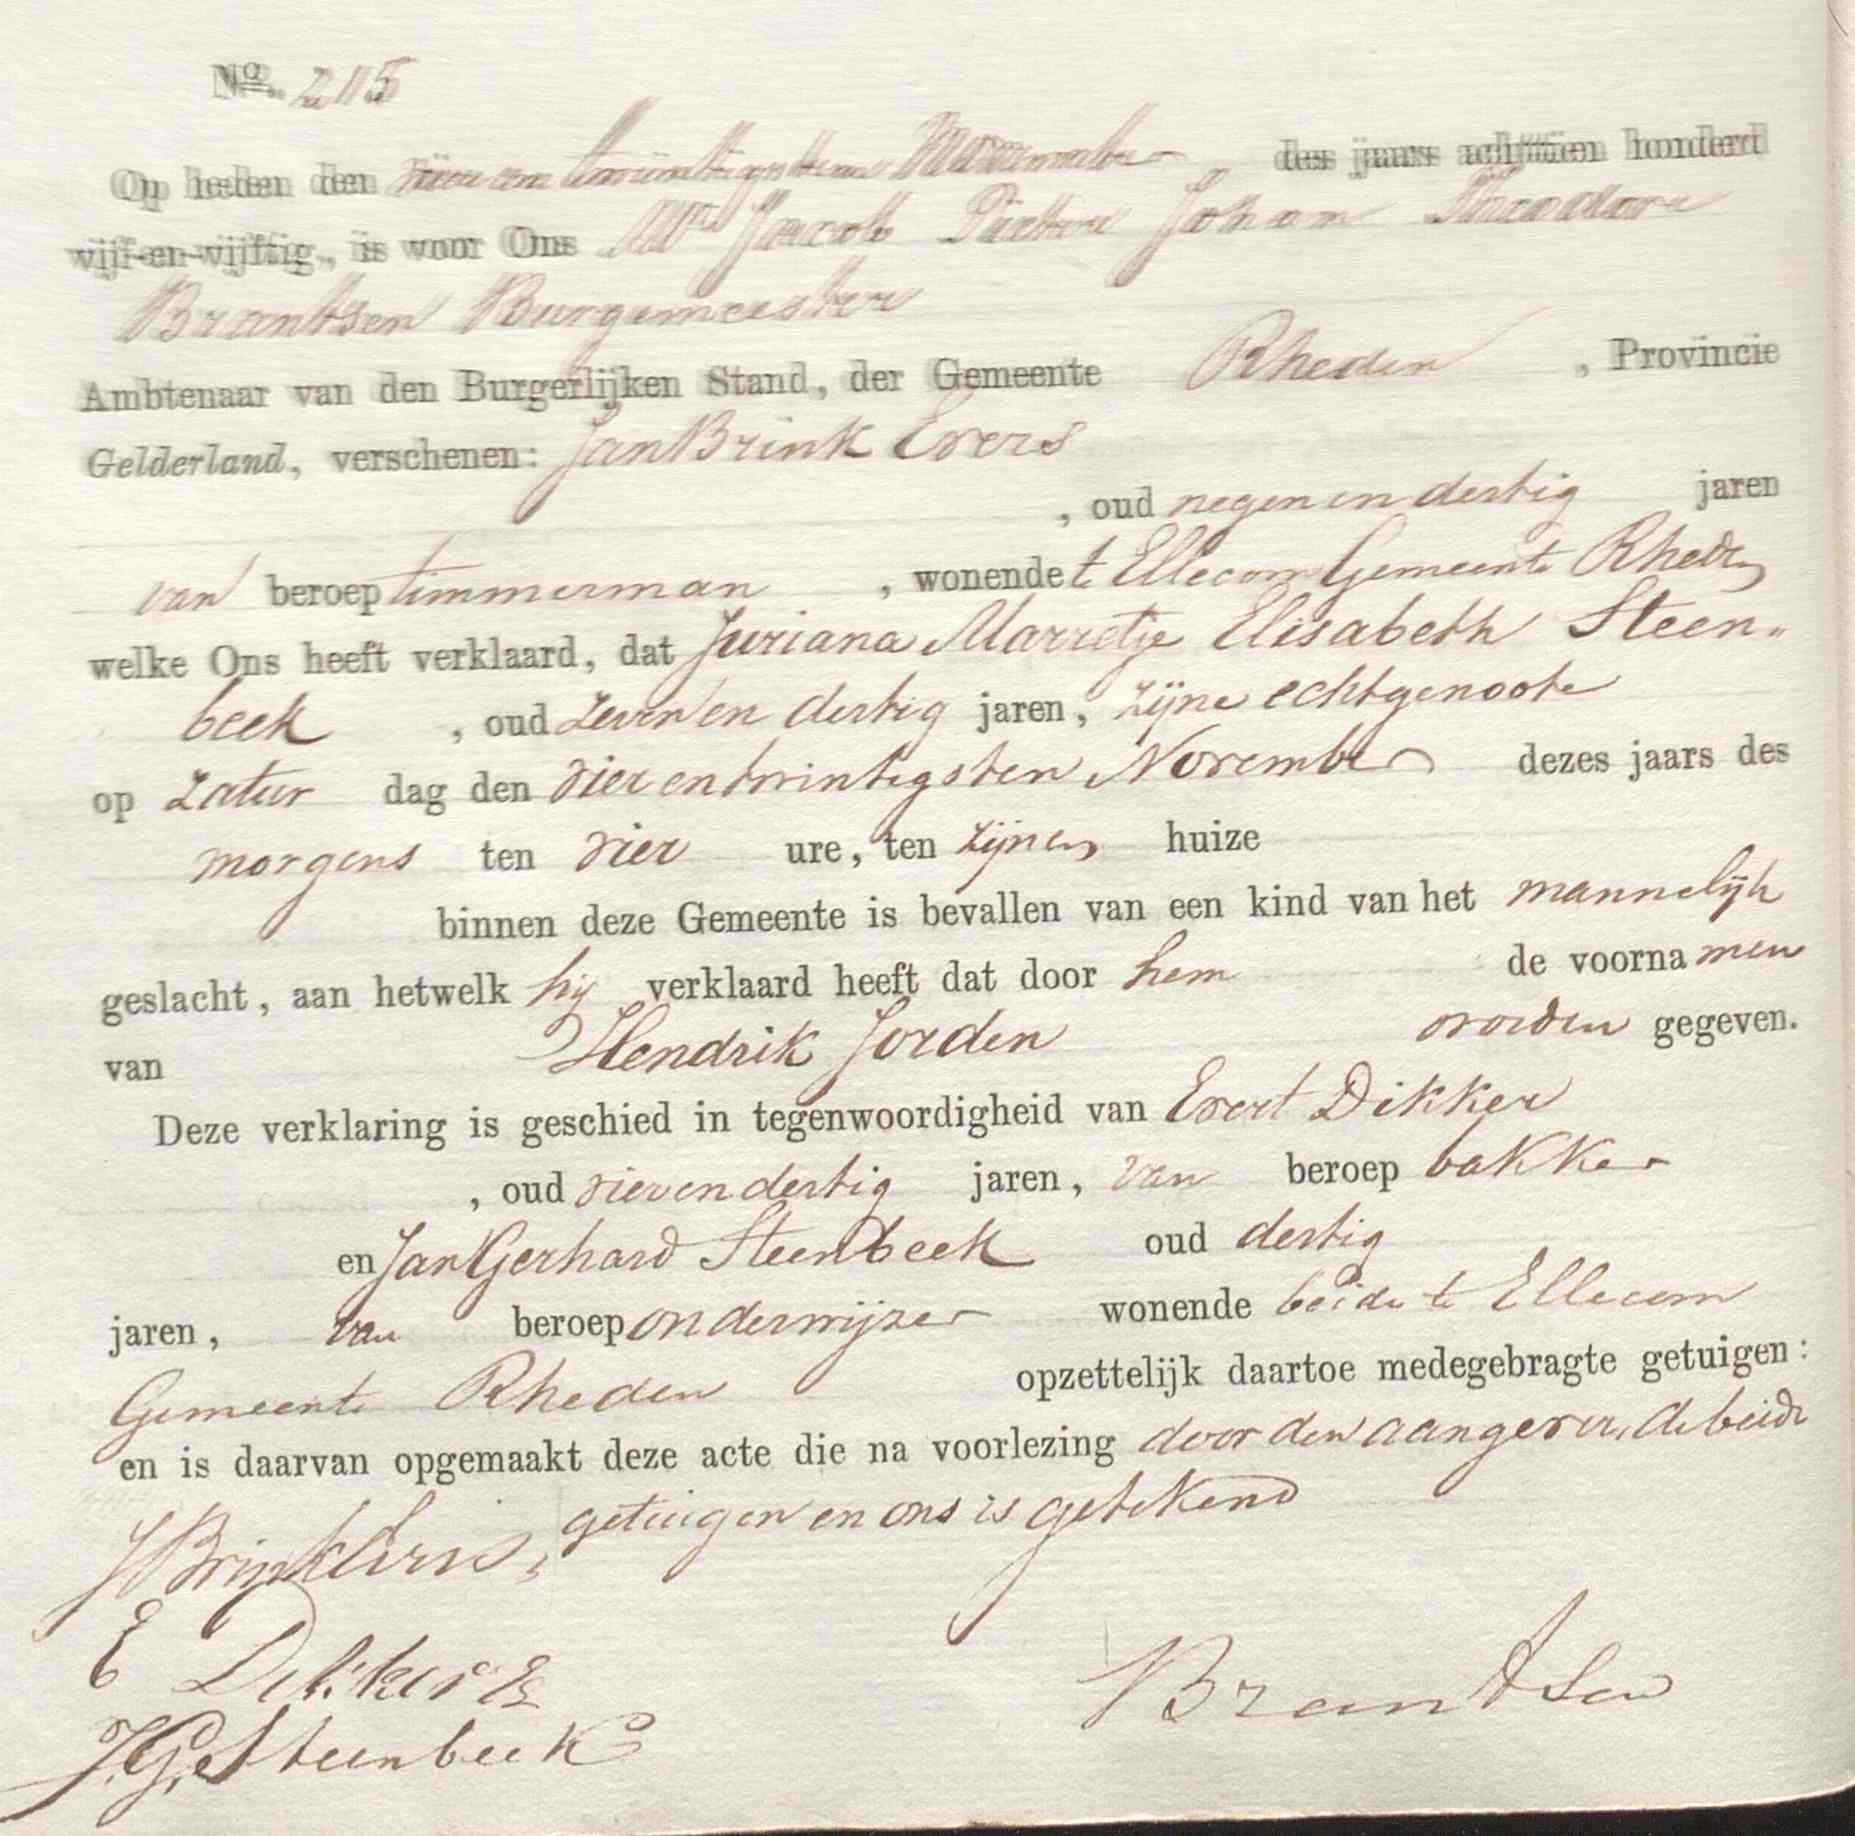 No. 215
Op heden den vier en twintigsten November des jaars achttien honderd
vijf-en-vijftig, is voor Ons Mr Jacob Pieter Johan Theodore
Brantsen Burgemeester
Ambtenaar van den Burgerlijken Stand, der Gemeente Rheden, Provincie
Gelderland, verschenen: Jan Brink Evers
, oud negen en dertig jaren
van beroep timmerman, wonende te Ellecom Gemeente Rheden
welke Ons heeft verklaard, dat Juriana Marretje Elisabeth Steen„
beek, oud zeven en dertig jaren, zijne echtgenoote
op zatur dag den vier en twintigsten November dezes jaars des
morgens ten vier ure, ten zijnen huize
binnen deze Gemeente is bevallen van een kind van het mannelijk
geslacht, aan hetwelk hij verklaard heeft dat door hem de voorna men
van Hendrik Jorden worden gegeven.
Deze verklaring is geschied in tegenwoordigheid van Evert Dikker
, oud vier en dertig jaren, van beroep bakker
en Jan Gerhard Steenbeek oud dertig
jaren, van beroep onderwijzer wonende beide te Ellecom
Gemeente Rheden opzettelijk daartoe medegebragte getuigen:
en is daarvan opgemaakt deze acte die na voorlezing door den aangever, de beide
getuigen en ons is getekend
J Brink Evers,
E Dikker
J. G. Steenbeek
Brantsen